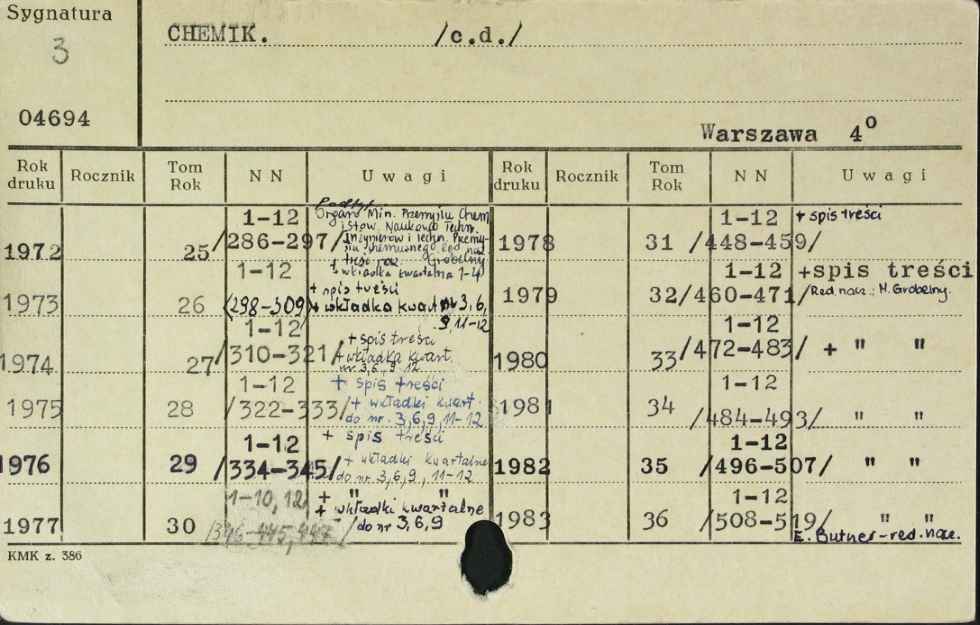 Sygnatura
3
04694
CHEMIK. /c.d./
Warszawa 4o
Rok druku Rocznik Tom Rok NN Uwagi Rok druku Rocznik Tom Rok NN Uwagi
1972 25 1-12 /286-297/
Organ Min. Przemysłu Chem.
i Stow. Naukowo Techn.
Inżynierów i Techn. Przemy-
treść
Grobelny
+ wkładka kwartalna 1-4
1973 26 1-12 (298-309)
+ spis treści
+ wkładka kwart. nr 3,6,
9, 11-12
1974 27 1-12 /310-321/
+ spis treści
+ wkładka kwart.
nr 3, 6, 9, 12
1975 28 1-12 /322-333/
+ spis treści
+ wkładki kwart.
do nr. 3,6,9, 11-12
1976 29 1-12 /334-345/
+ spis treści
+ wkładki kwartalne
do nr. 3,6,9, 11-12
1977 30 1-10, 12
+ " "
+ wkładki kwartalne
do nr 3,6,9
1978 31 1-12 /448-459/ + spis treści
1979 32 1-12 /460-471/ +spis treści
Red. nacz.: H. Grobelny.
1980 33 1-12 /472-483/ + " "
1981 34 1-12 /484-493/ " "
1982 35 1-12 /496-507/ " "
1983 36 1-12 /508-519/ " "
E. Butner-red. nacz.
KMK z. 386